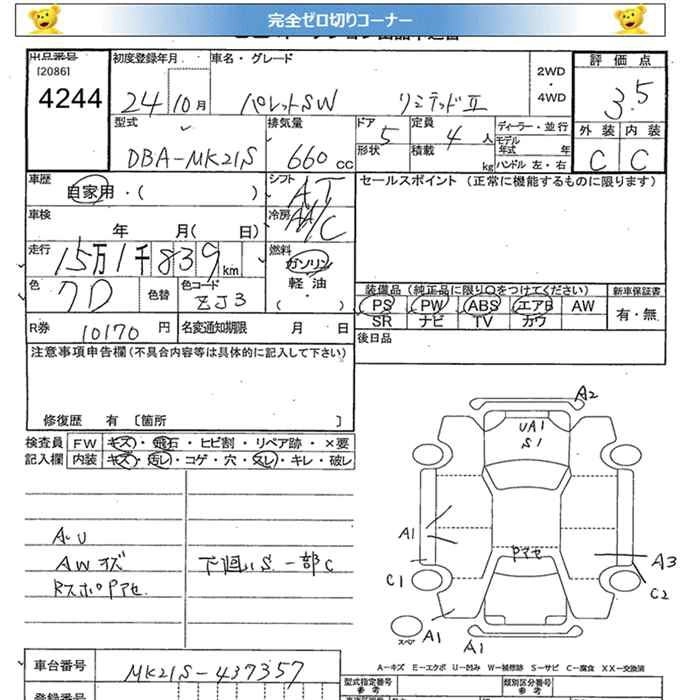 完全ゼロ切りコーナー
出品番号 初度登録年月 車名・グレード 2WD・4WD 評価点
[2086]
4244 24 10月 パレットSW リミテッドⅡ 3.5
型式 排気量 ドア 5 定員 4人 ディーラー・並行 外装 内装
DBA-MK21S 660cc 形状 積載 kg モデル年式 年 C C
ハンドル 左・右
車歴 自家用・( ) シフト AT セールスポイント (正常に機能するものに限ります)
車検 年 月( 日) 冷房 AA/C
走行 15万1千839km 燃料 ガソリン
軽油
( ・ )
色 色替 色コード ZJ3 装備品 (純正品に限り○をつけてください) 新車保証書
PS PW ABS エアB AW 有・無
SR ナビ TV カワ
R券 10170円 名変通知期限 月 日 後日品
注意事項申告欄(不具合内容等は具体的に記入して下さい)
修復歴 有 〔箇所 〕
検査員 FW キズ・飛石・ヒビ割・リペア跡・×要
記入欄 内装 キズ・汚レ・コゲ・穴・スレ・キレ・破レ
A.U
AWキズ
RスポロPアセ
下廻りS.一部C
A2
UA1
S1
A1
Pアセ
A3
C1
C2
スペア
A1
A1
A−キズ E−エクボ U−凹み W−補修跡 S−サビ C−腐食 XX−交換済
車台番号 MK21S-437357
型式指定番号 類別区分番号
参考 参考